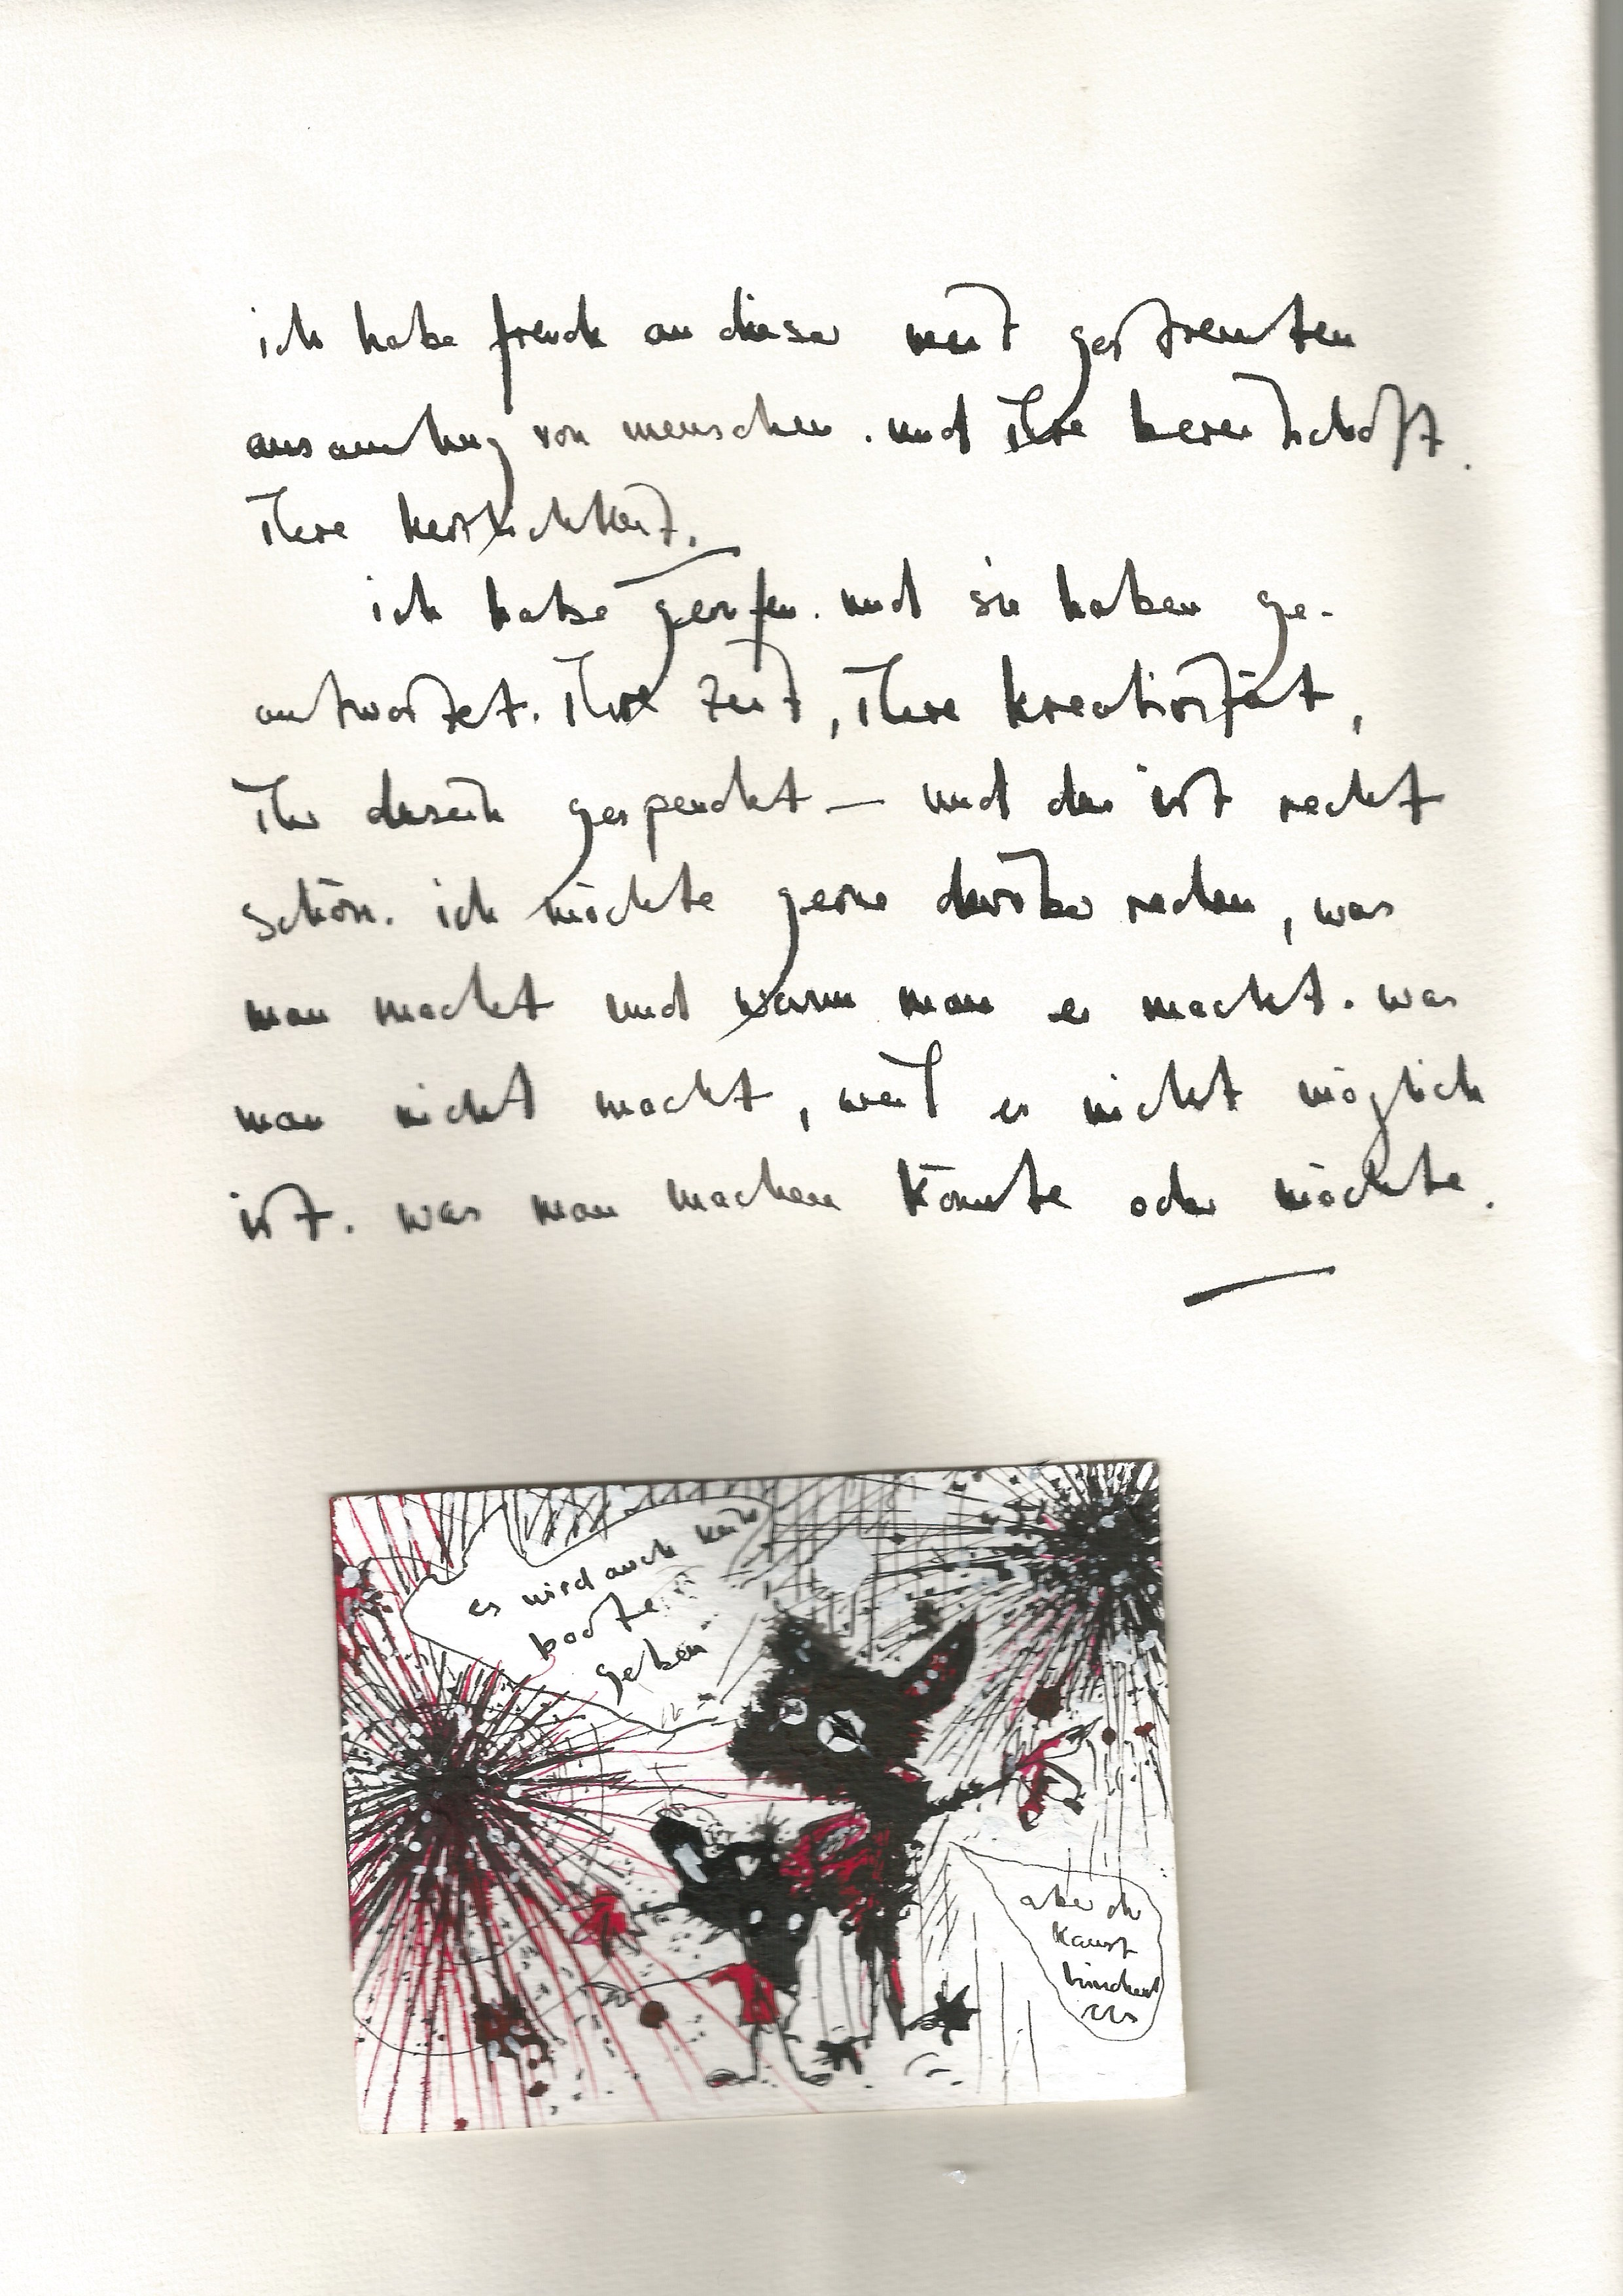 ich habe freude an dieser weit gestreuten
ansammlung von menschen. und ihre bereitschaft.
ihre herzlichkeit.
ich habe gerufen. und sie haben ge-
antwortet. ihre zeit, ihre kreativität,
ihr dasein gespendet — und das ist recht
schön. ich möchte gerne darüber reden, was
man macht und warum man es macht. was
man nicht macht, weil es nicht möglich
ist. was man machen könnte oder möchte.
es wird auch keine
boote
geben
aber du
kannst